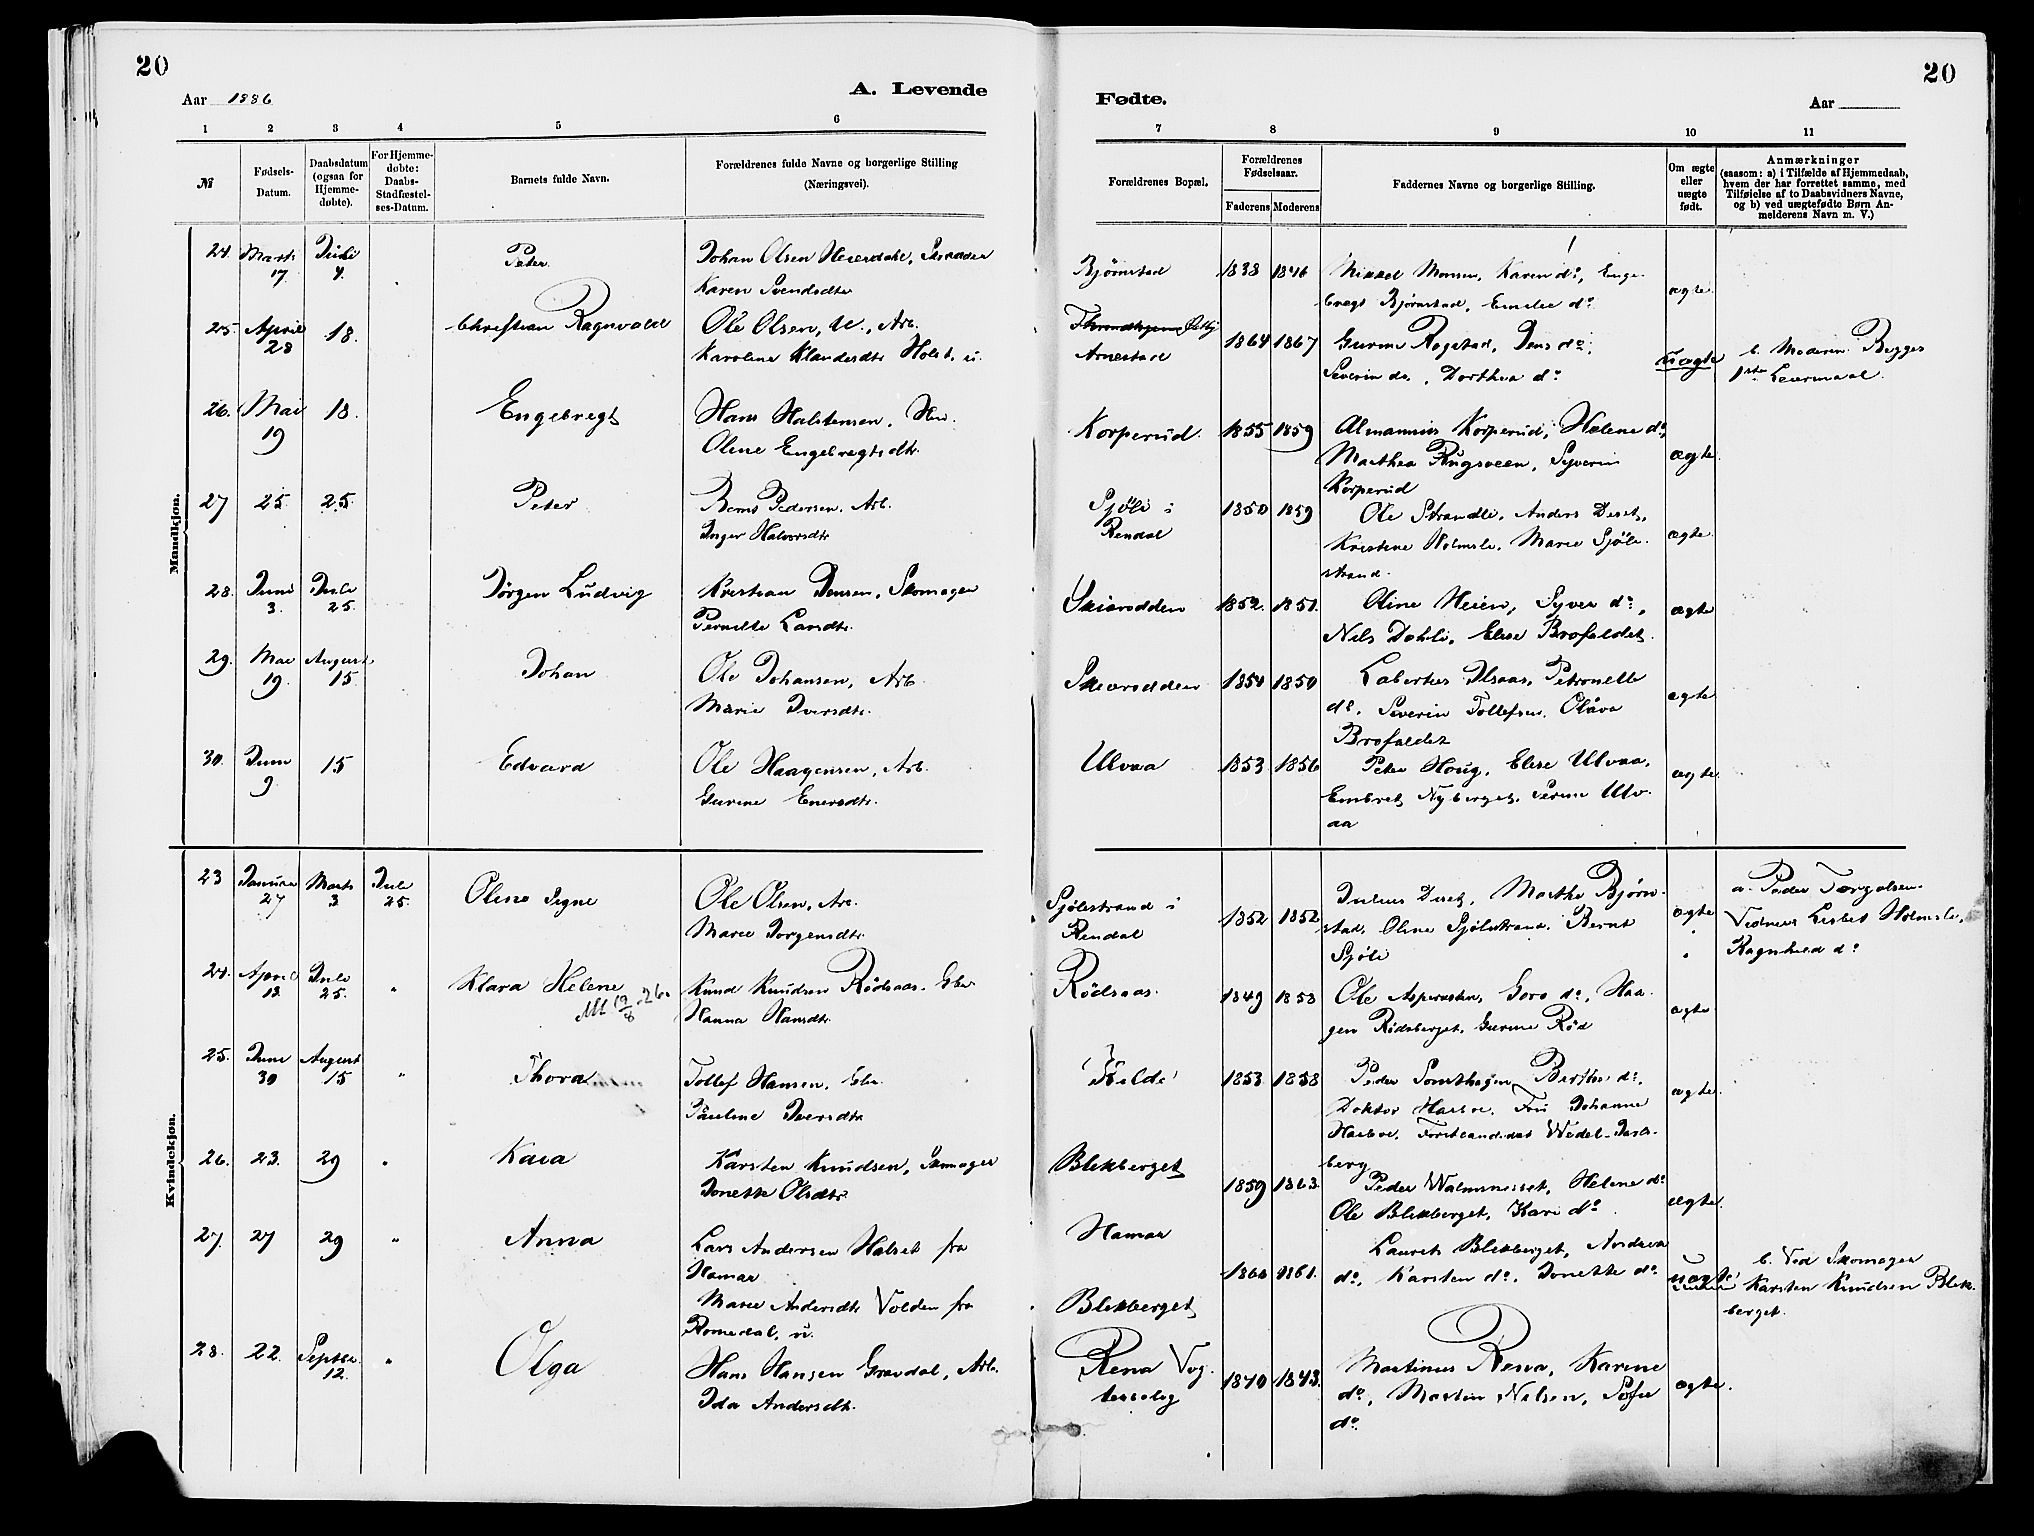 20
20
Aar 1886
A. Levende
Fødte.
Aar
1 2 3 4 5 6 7 8 9 10 11
№
Fødsels-
Datum.
Daabsdatum
(ogsaa for
Hjemme-
døbte).
For Hjemme-
døbte:
Daabs-
Stadfæstel-
ses-Datum.
Barnets fulde Navn.
Forældrenes fulde Navne og borgerlige Stilling
(Næringsvei).
Forældrenes Bopæl.
Forældrenes
Fødselsaar.
Faderens Moderens
Faddernes Navne og borgerlige Stilling.
Om ægte
eller
uægte
født.
Anmærkninger
(saasom: a) i Tilfælde af Hjemmedaab,
hvem der har forrettet samme, med
Tilføielse af to Daabsvidners Navne,
og b) ved uægtefødte Børn An-
melderens Navn m. V.)
Mandkjøn.
24. Marts 17. Juli 4. Peter. Johan Olsen Heierdahl,
Karen Svendsdtr
Bjørnstad 1838 1846 Mikkel Monsen, Karen do, Enge-
bregt Bjørnstad, Emelie do.
ægte.
25. April 28 18. Christian Ragnvald Ole Olsen, U., Arb.
Karoline Holst, u.
Østby
Arnestad
1864 1867 Gurine Rogstad, Jens do,
Severin do., Dorthea do.
uægte
b. Moderen. Begges
1ste Leiermaal.
26. Mai 19 18. Engebregt Hans Halstensen,
Oline Engebregtsdtr.
Korperud. 1855 1859 Korperud, Helene do,
Marthea Rugsveen, Syverin
Korperud
ægte.
27 25 25. Peter Bernt Pedersen, Arb.
Inger Halvorsdtr
Sjöli i
Rendal
1850 1859 Ole Strandli, Anders Deset,
Kristine Holmsli, Marie Sjöli-
strand.
ægte.
28. Juni 3. Juli 25. Jörgen Ludvig Kristian Jensen, Skomager
Pernille Larsdtr.
Skiærodden 1852. 1851. Oline Heien, Syver do,
Nils Dahli, Elise Brofaldet.
ægte
29. Mai 19. August 15. Johan Ole Johansen, Arb.
Marie Iversdtr.
Skiærodden 1854 1850 Petronelle
do, Severin Tollefsen, Olava
Brofaldet
ægte
30. Juni 9. 15 Edvard Ole Haagensen, Arb.
Gurine Enersdtr.
Ulvaa 1853 1856 Peter Houg, Elise Ulvaa,
Embret Nyberget, Serine Ulv-
aa
ægte
Kvindekjøn.
23 Januar 27 Marts 3 Juli 25. Oline Signe Ole Olsen, Arb.
Marie Jorgensdtr.
Sjölistrand i
Rendal
1852 1852 Julius Deset, Marthe Bjørn-
stad, Oline Sjölistrand, Bernt
Sjöli
ægte
a. Peder Torgalsen.
Vidner Lisbet Holmsli,
Ragnhild do
24. April 13. Juli 25. " Klara Helene
Knud Knudsen Rödsaas.
Hanna Hansdtr.
Rödsaas. 1849 1853 Ole Asperusten, Goro do, Haa-
gen Rödsberget, Gurine Röd
ægte
25. Juni 30 August 15 " Thora Tollef Hansen,
Pauline Iversdtr
Kilde 1853 1858 Peder Somthagen, Berthe do,
Doktor Harboe, Fru Johanne
Harboe, Forstcandidat Wedel-Jarls-
berg
ægte.
26. 23. 29 " Kaia Karsten Knudsen, Skomager
Jonette Olsdtr
Blekberget 1859 1863. Peder Helene do
Ole Blekberget, Kari do
ægte.
27. 27 29 " Anna Lars Andersen Halset fra
Hamar
Marie Andersdtr Volden fra
Romedal, u.
Hamar
Blekberget
1860 1861. Laurits Blekberget, Andrea
do, Karsten do, Jonette do
uægte
b. Ved Skomager
Karsten Knudsen Blek-
berget.
28. 22. Septbr. 12. " Olga Hans Hansen Grøvdal, Arb.
Ida Andersdtr.
Rena Vog-
terbolig
1840 1843. Martinus Rena, Karine
do, Martin Nilsen, Sofie
do.
ægte.